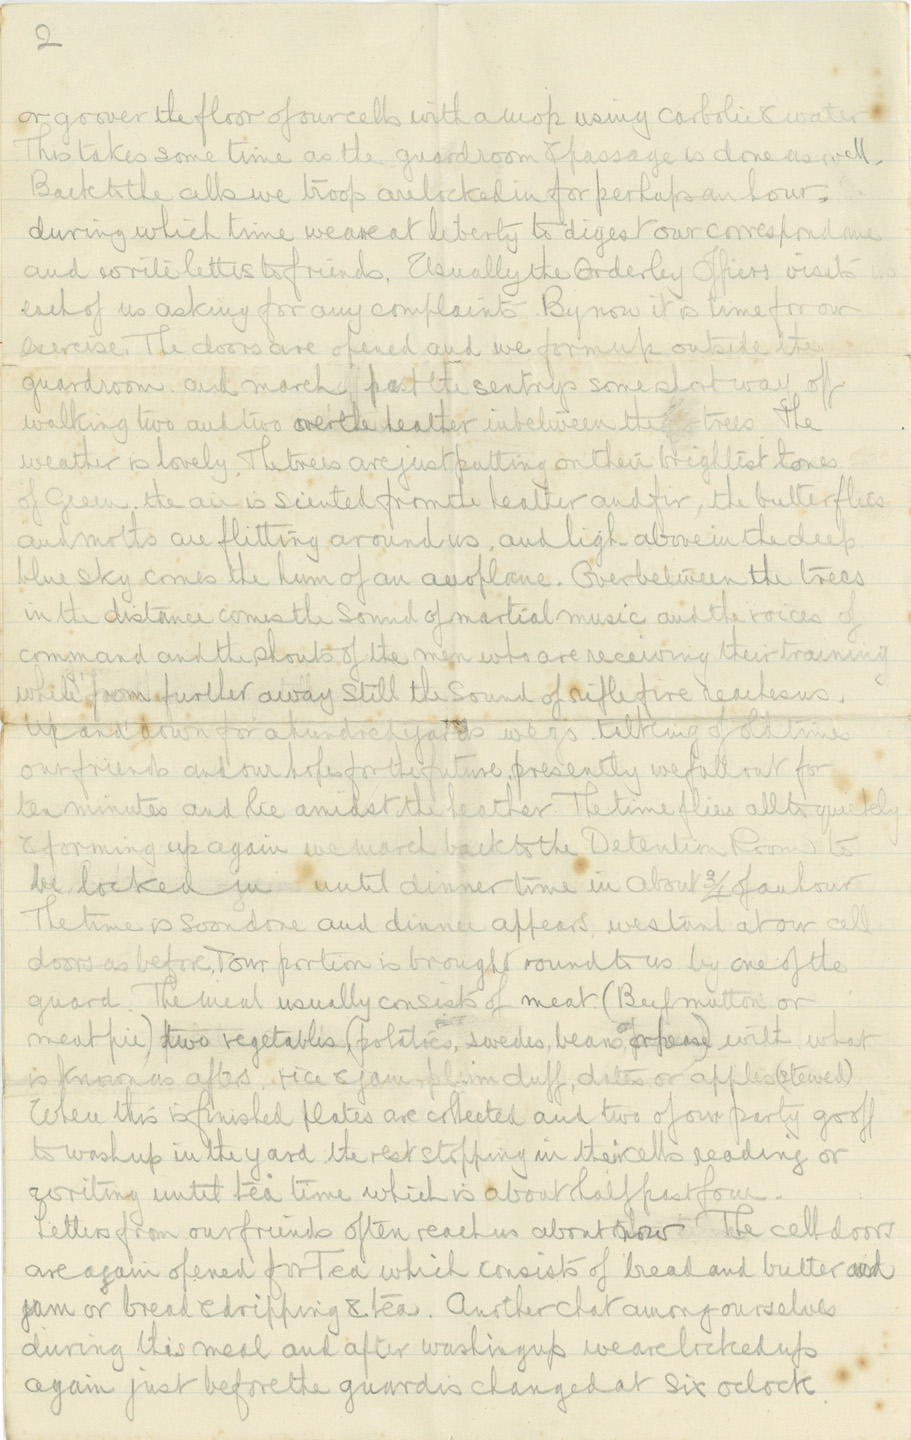 2
or go over the floor of our cells with a mop using carbolic & water
This takes some time as the guardroom & passage is done as well.
Back to the cells we troop are locked in for perhaps an hour,
during which time we are at liberty to digest our correspondance
and write letters to friends. Usually the Orderley Officers visits us
each of us asking for any complaints. By now it is time for our
exercise. The doors are opened and we form up outside the
guardroom and march past the sentrys some short way off
walking two and two over the heather inbetween the trees The
weather is lovely. The trees are just putting on their brightist tones
of Green. the air is scented from the heather and fir, the butterflies
and moths are flitting around us, and high above in the deep
blue sky comes the hum of an aeroplane. Over between the trees
in the distance comes the sound of martial music and the voices of
command and the shouts of the men who are receiving their training
while from further away still the sound of rifle fire reaches us.
Up and down for a hundred yards we go talking of old times
our friends and our hopes for the future, presently we fall out for
ten minutes and lie amidst the heather. The time flies all to quickly
& forming up again we march back to the Detention Room to
be locked in until dinner time in about 3/4 of an hour
The time is soon done and dinner appears, we stand at our cell
doors as before, & our portion is brought round to us by one of the
guard. The meal usually consists of meat (Beef mutton or
meat pie) two vegetables (potatoes, swedes, beans or pease) with what
is known as afters, rice & jam, plum duff, dates or apples (stewed)
When this is finished plates are collected and two of our party go off
to wash up in the yard the rest stopping in their cells reading or
writing until tea time which is about half past four.
Letters from our friends often reach us about now The cell doors
are again opened for Tea which consists of bread and butter and
jam or bread & dripping & tea. Another chat among ourselves
during this meal and after washing up we are locked up
again just before the guard is changed at six oclock.